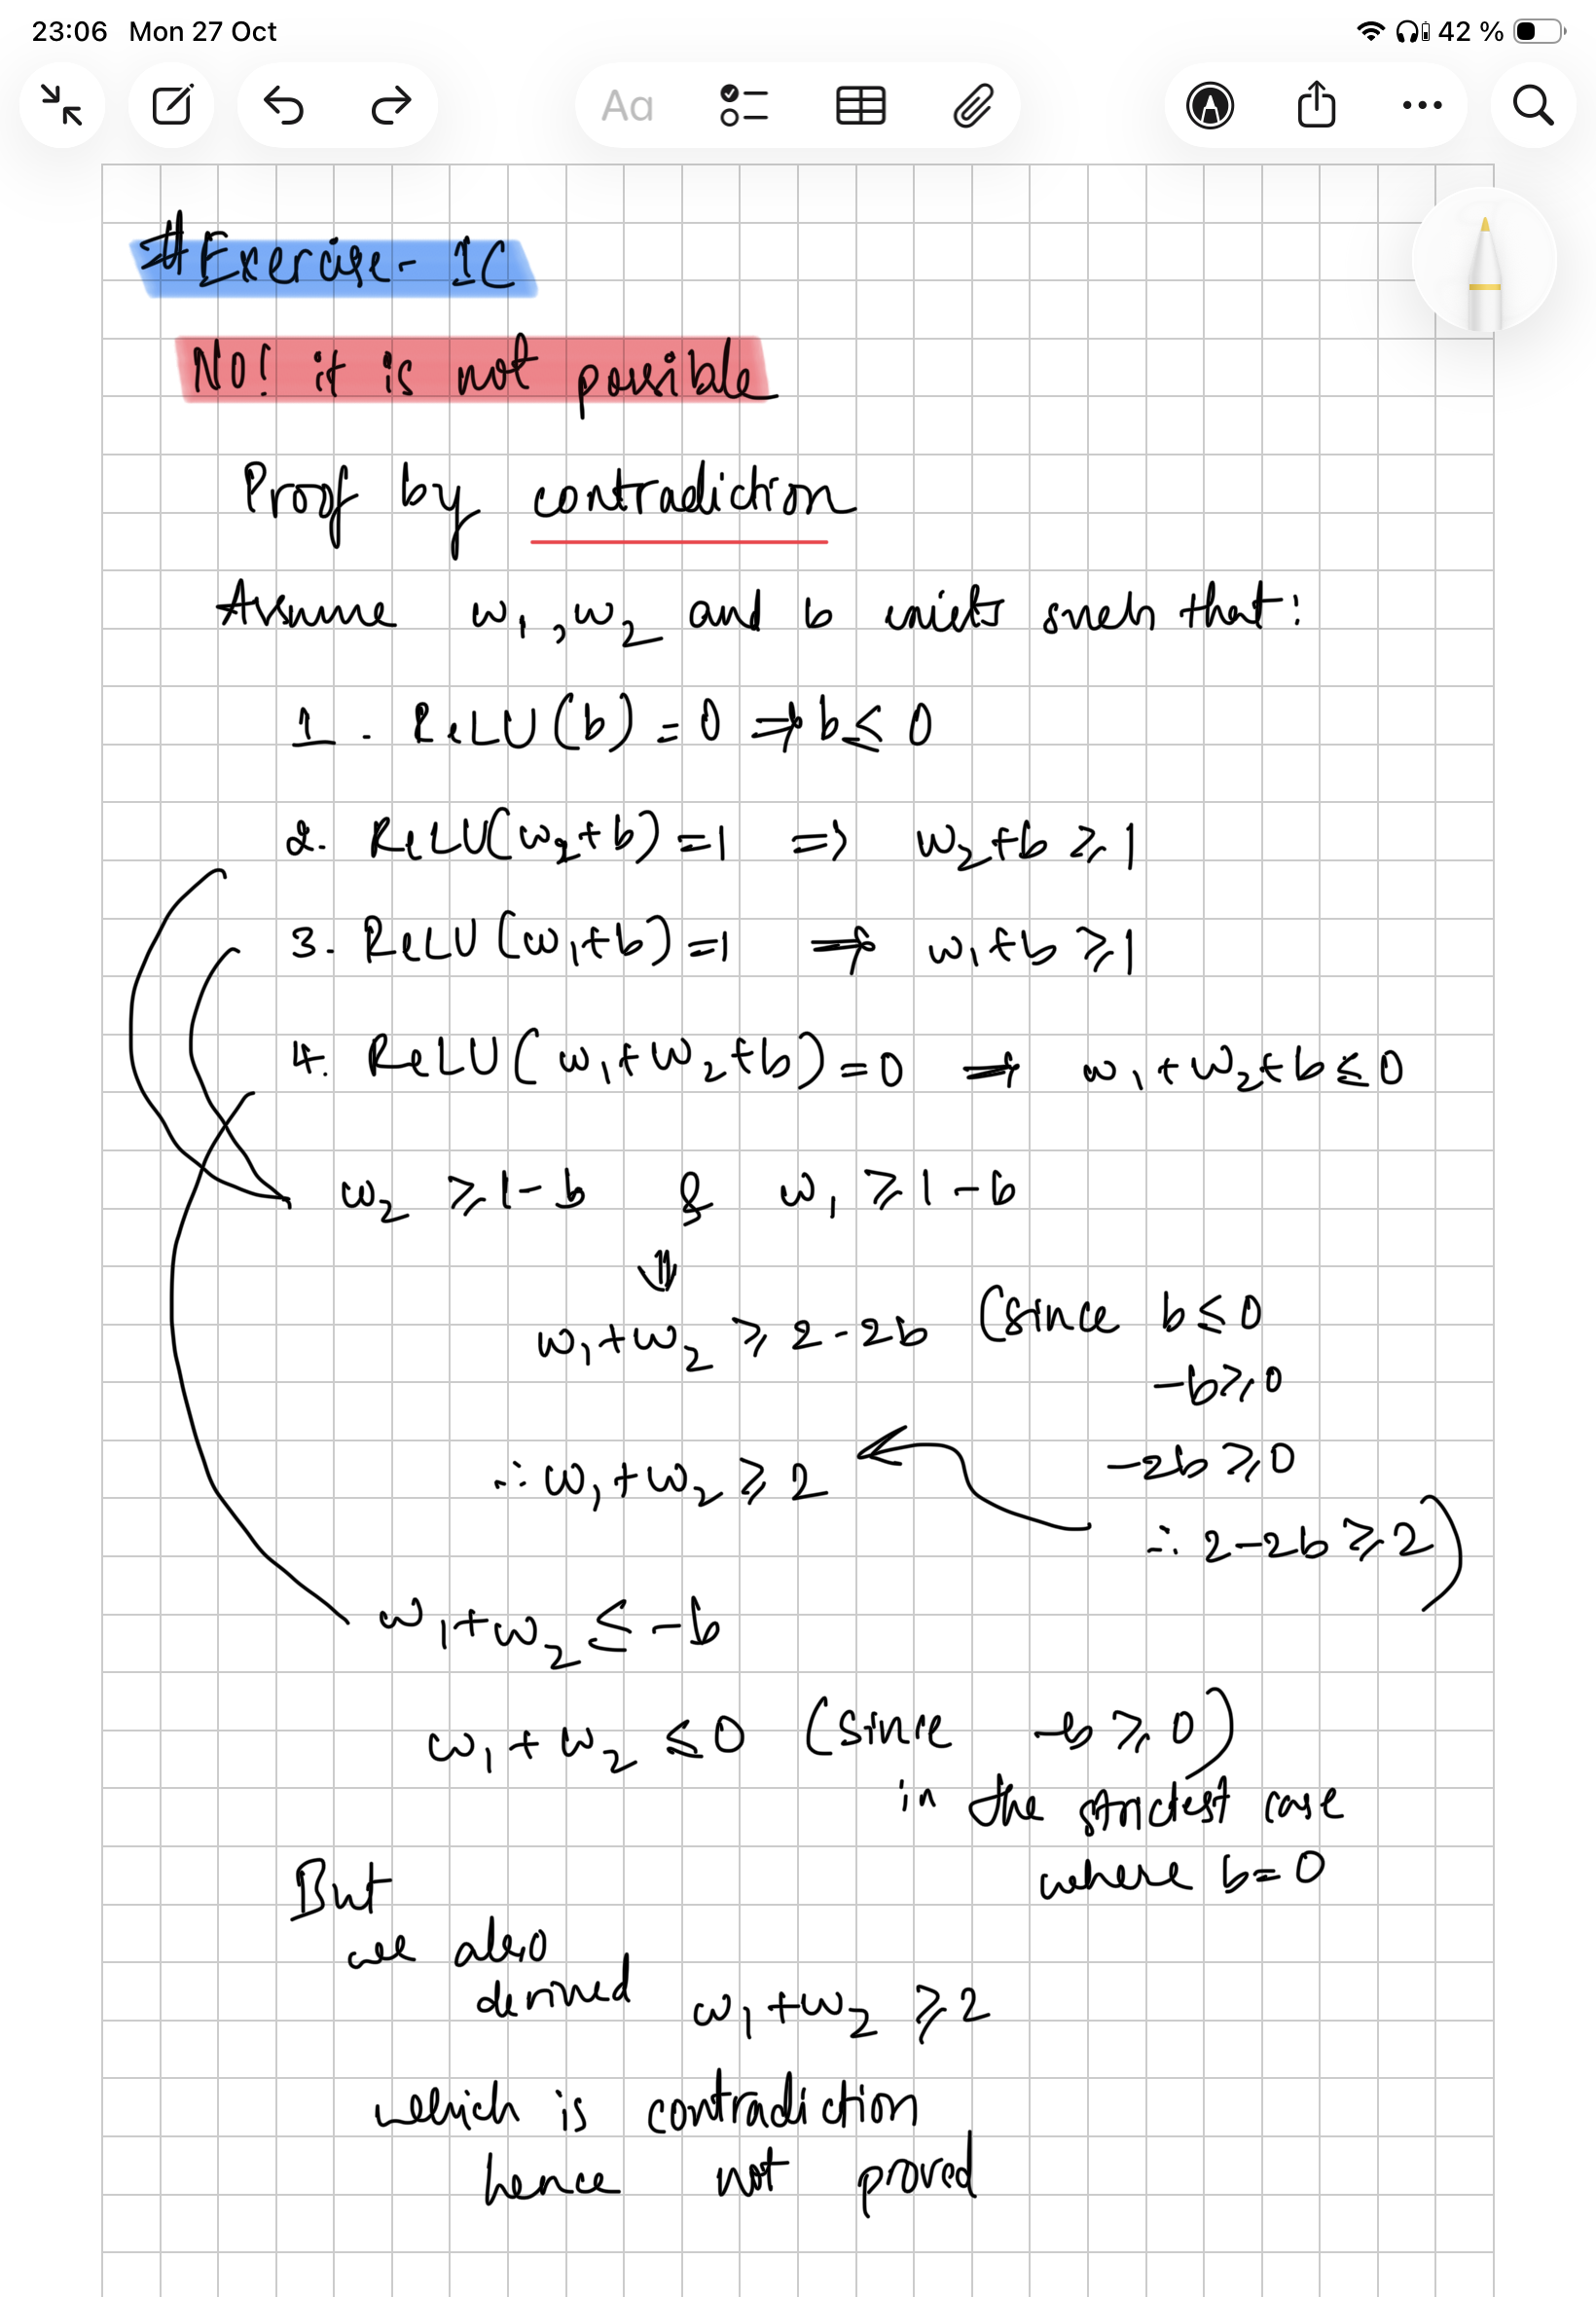 23:06 Mon 27 Oct 42 %
Aa
#Exercise- 1C
NO! it is not possible
Proof by contradiction
Assume w₁,w₂ and b exists such that:
1. ReLU(b) = 0 ⇒ b ≤ 0
2. ReLU(w₂+b) = 1 ⇒ w₂+b ⩾ 1
3. ReLU(w₁+b) = 1 ⇒ w₁+b ⩾ 1
4. ReLU(w₁+w₂+b) = 0 ⇒ w₁+w₂+b ≤ 0
w₂ ⩾ 1-b & w₁ ⩾ 1-b
⇓
w₁+w₂ ⩾ 2-2b (since b ≤ 0
-b ⩾ 0
-2b ⩾ 0
∴ w₁+w₂ ⩾ 2
∴ 2-2b ⩾ 2)
w₁+w₂ ≤ -b
w₁+w₂ ≤ 0 (since -b ⩾ 0)
in the strictest case
where b = 0
But
we also
derived w₁+w₂ ⩾ 2
which is contradiction
hence not proved